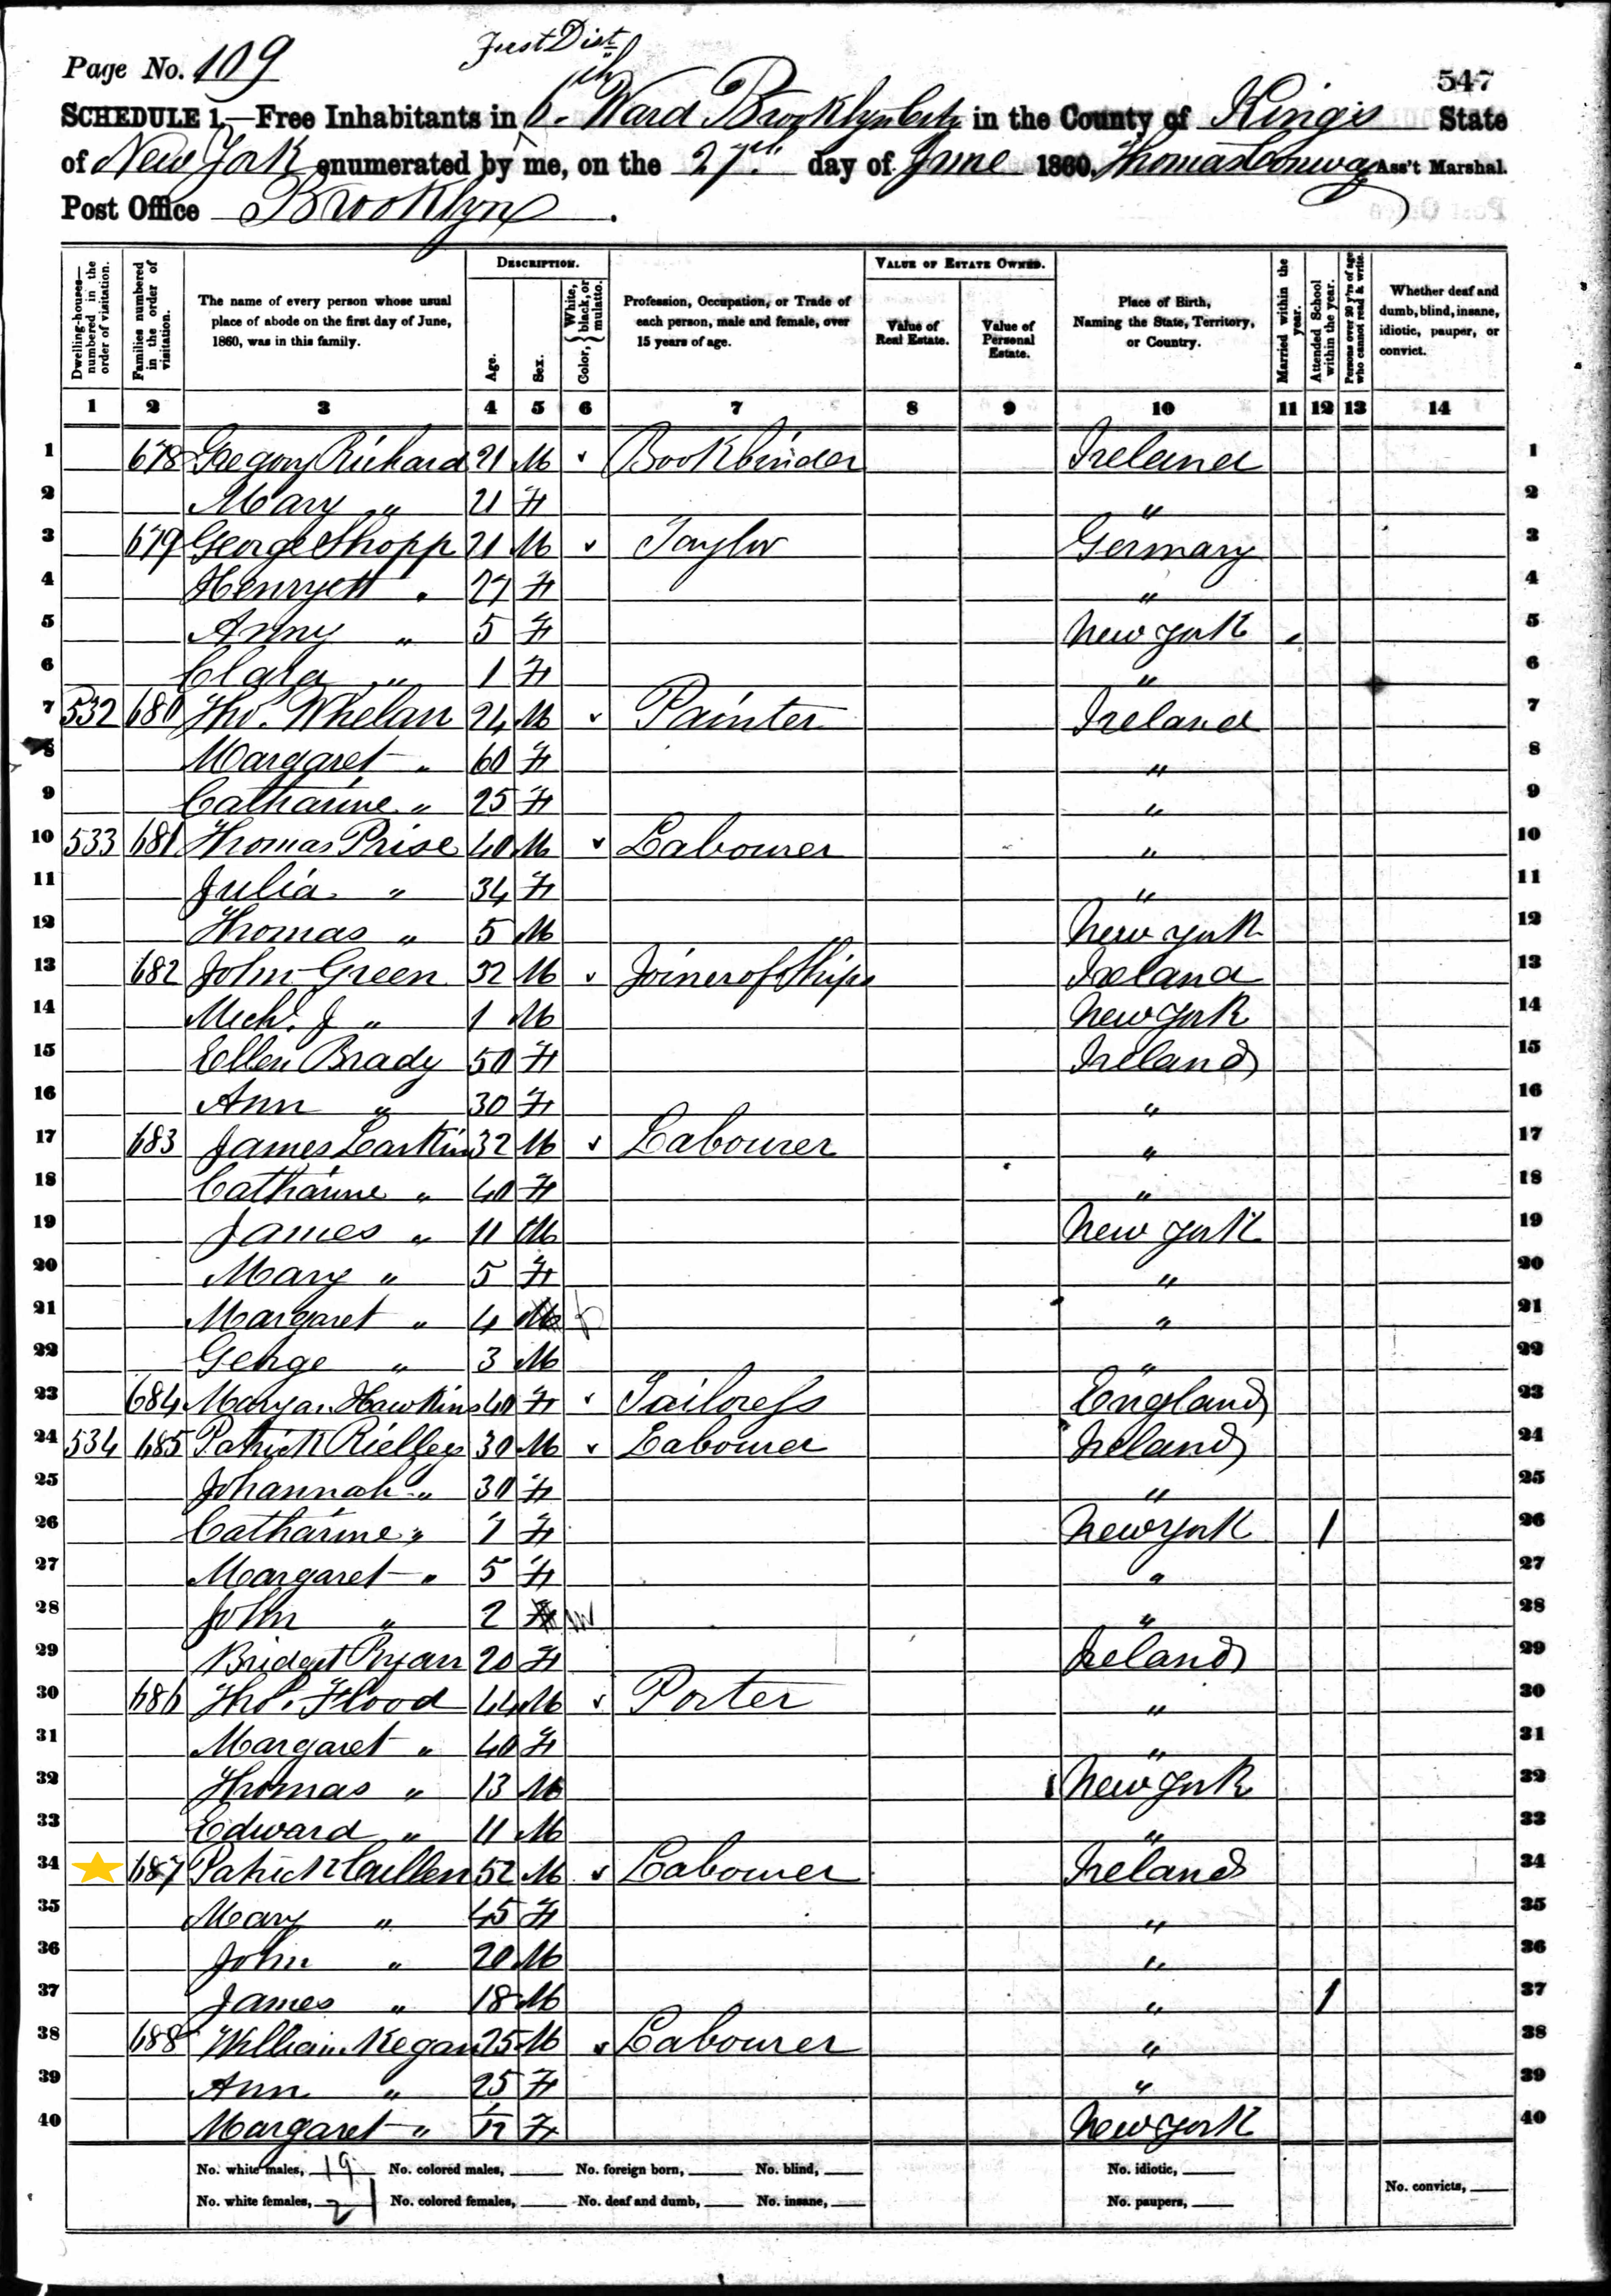 First Dist
Page No. 109
547
SCHEDULE 1.—Free Inhabitants in 6th Ward Brooklyn City in the County of Kings State
of New York enumerated by me, on the 27th day of June 1860. Thomas Conway Ass't Marshal.
Post Office Brooklyn.
Dwelling-houses—numbered in the order of visitation.
Families numbered in the order of visitation.
The name of every person whose usual place of abode on the first day of June, 1860, was in this family.
DESCRIPTION.
Age.
Sex.
Color, { White, black, or mulatto.
Profession, Occupation, or Trade of each person, male and female, over 15 years of age.
VALUE OF ESTATE OWNED.
Value of Real Estate.
Value of Personal Estate.
Place of Birth, Naming the State, Territory, or Country.
Married within the year.
Attended School within the year.
Persons over 20 y'rs of age who cannot read & write.
Whether deaf and dumb, blind, insane, idiotic, pauper, or convict.
1 2 3 4 5 6 7 8 9 10 11 12 13 14
1 678 Gregory Richard 21 M Bookbinder Ireland 1
2 Mary " 21 F " 2
3 679 George Shopp 21 M Taylor Germany 3
4 Henryett " 27 F " 4
5 Anny " 5 F New York 5
6 Clara " 1 F " 6
7 532 680 Tho. Whelan 24 M Painter Ireland 7
8 Margaret " 60 F " 8
9 Catharine " 25 F " 9
10 533 681 Thomas Prise 40 M Labourer " 10
11 Julia " 34 F " 11
12 Thomas " 5 M New York 12
13 682 John Green 32 M Joiner of Ships Ireland 13
14 Michl. J " 1 M New York 14
15 Ellen Brady 50 F Ireland 15
16 Ann " 30 F " 16
17 683 James Larkin 32 M Labourer " 17
18 Catharine " 40 F " 18
19 James " 11 M New York 19
20 Mary " 5 F " 20
21 Margaret " 4 M f " 21
22 George " 3 M " 22
23 684 Maryan Hawkins 40 F Tailoress England 23
24 534 685 Patrick Rielley 30 M Labourer Ireland 24
25 Johannah " 30 F " 25
26 Catharine " 7 F New York 1 26
27 Margaret " 5 F " 27
28 John " 2 F M " 28
29 Bridget Ryan 20 F Ireland 29
30 686 Tho. Flood 44 M Porter " 30
31 Margaret " 40 F " 31
32 Thomas " 13 M New York 32
33 Edward " 11 M " 33
34 687 Patrick Cullen 52 M Labourer Ireland 34
35 Mary " 45 F " 35
36 John " 20 M " 36
37 James " 18 M " 1 37
38 688 William Kegan 25 M Labourer " 38
39 Ann " 25 F " 39
40 Margaret " 1/12 F New York 40
No. white males, 19 No. colored males, No. foreign born, No. blind, No. idiotic,
No. white females, 21 No. colored females, No. deaf and dumb, No. insane, No. paupers, No. convicts,